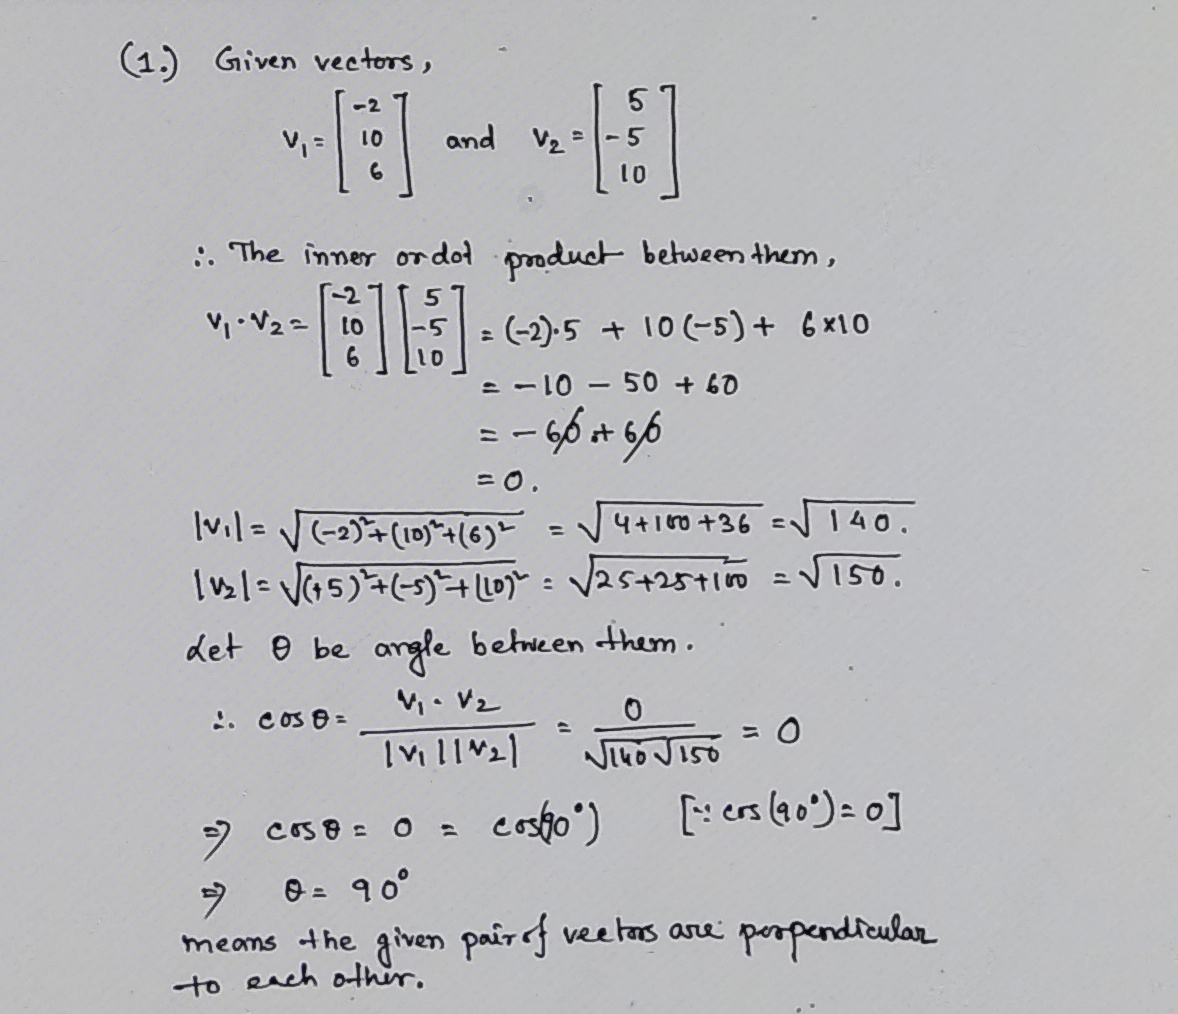 (1.) Given vectors,
V₁ = [-2 10 6] and V₂ = [5 -5 10]
∴ The inner or dot product between them,
V₁ · V₂ = [-2 10 6] [5 -5 10] = (-2)·5 + 10(-5) + 6×10
= -10 - 50 + 60
= -60 + 60
= 0.
|V₁| = √((-2)²+(10)²+(6)²) = √(4+100+36) = √140.
|V₂| = √((+5)²+(-5)²+(10)²) = √(25+25+100) = √150.
Let θ be angle between them.
∴ cosθ = V₁ · V₂ / |V₁||V₂| = 0 / √140 √150 = 0
⇒ cosθ = 0 = cos(90°) [∵ cos(90°) = 0]
⇒ θ = 90°
means the given pair of vectors are perpendicular
to each other.